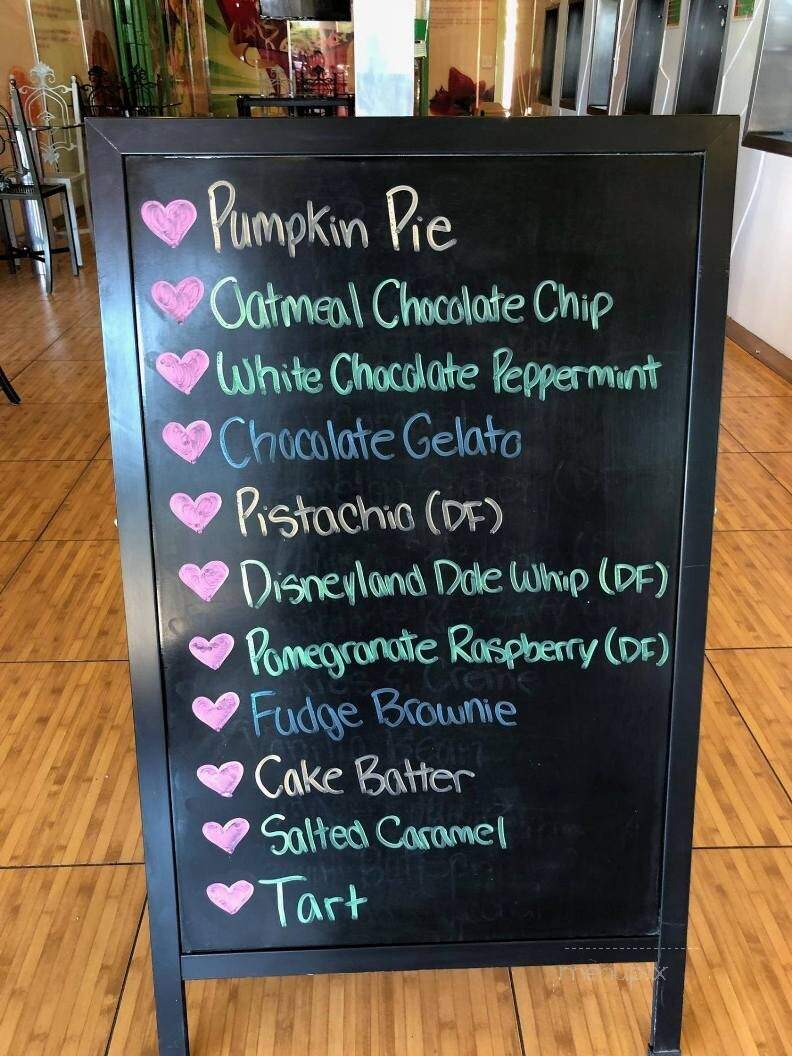 Pumpkin Pie
Oatmeal Chocolate Chip
White Chocolate Peppermint
Chocolate Gelato
Pistachio (DF)
Disneyland Dole Whip (DF)
Pomegranate Raspberry (DF)
Fudge Brownie
Cake Batter
Salted Caramel
Tart